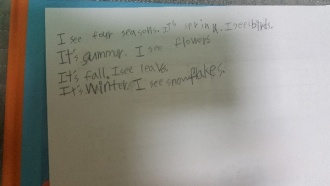 I see four seasons. It's spring. I see birds.
It's summer. I see flowers
It's fall. I see leaves
It's winter. I see snowflakes.